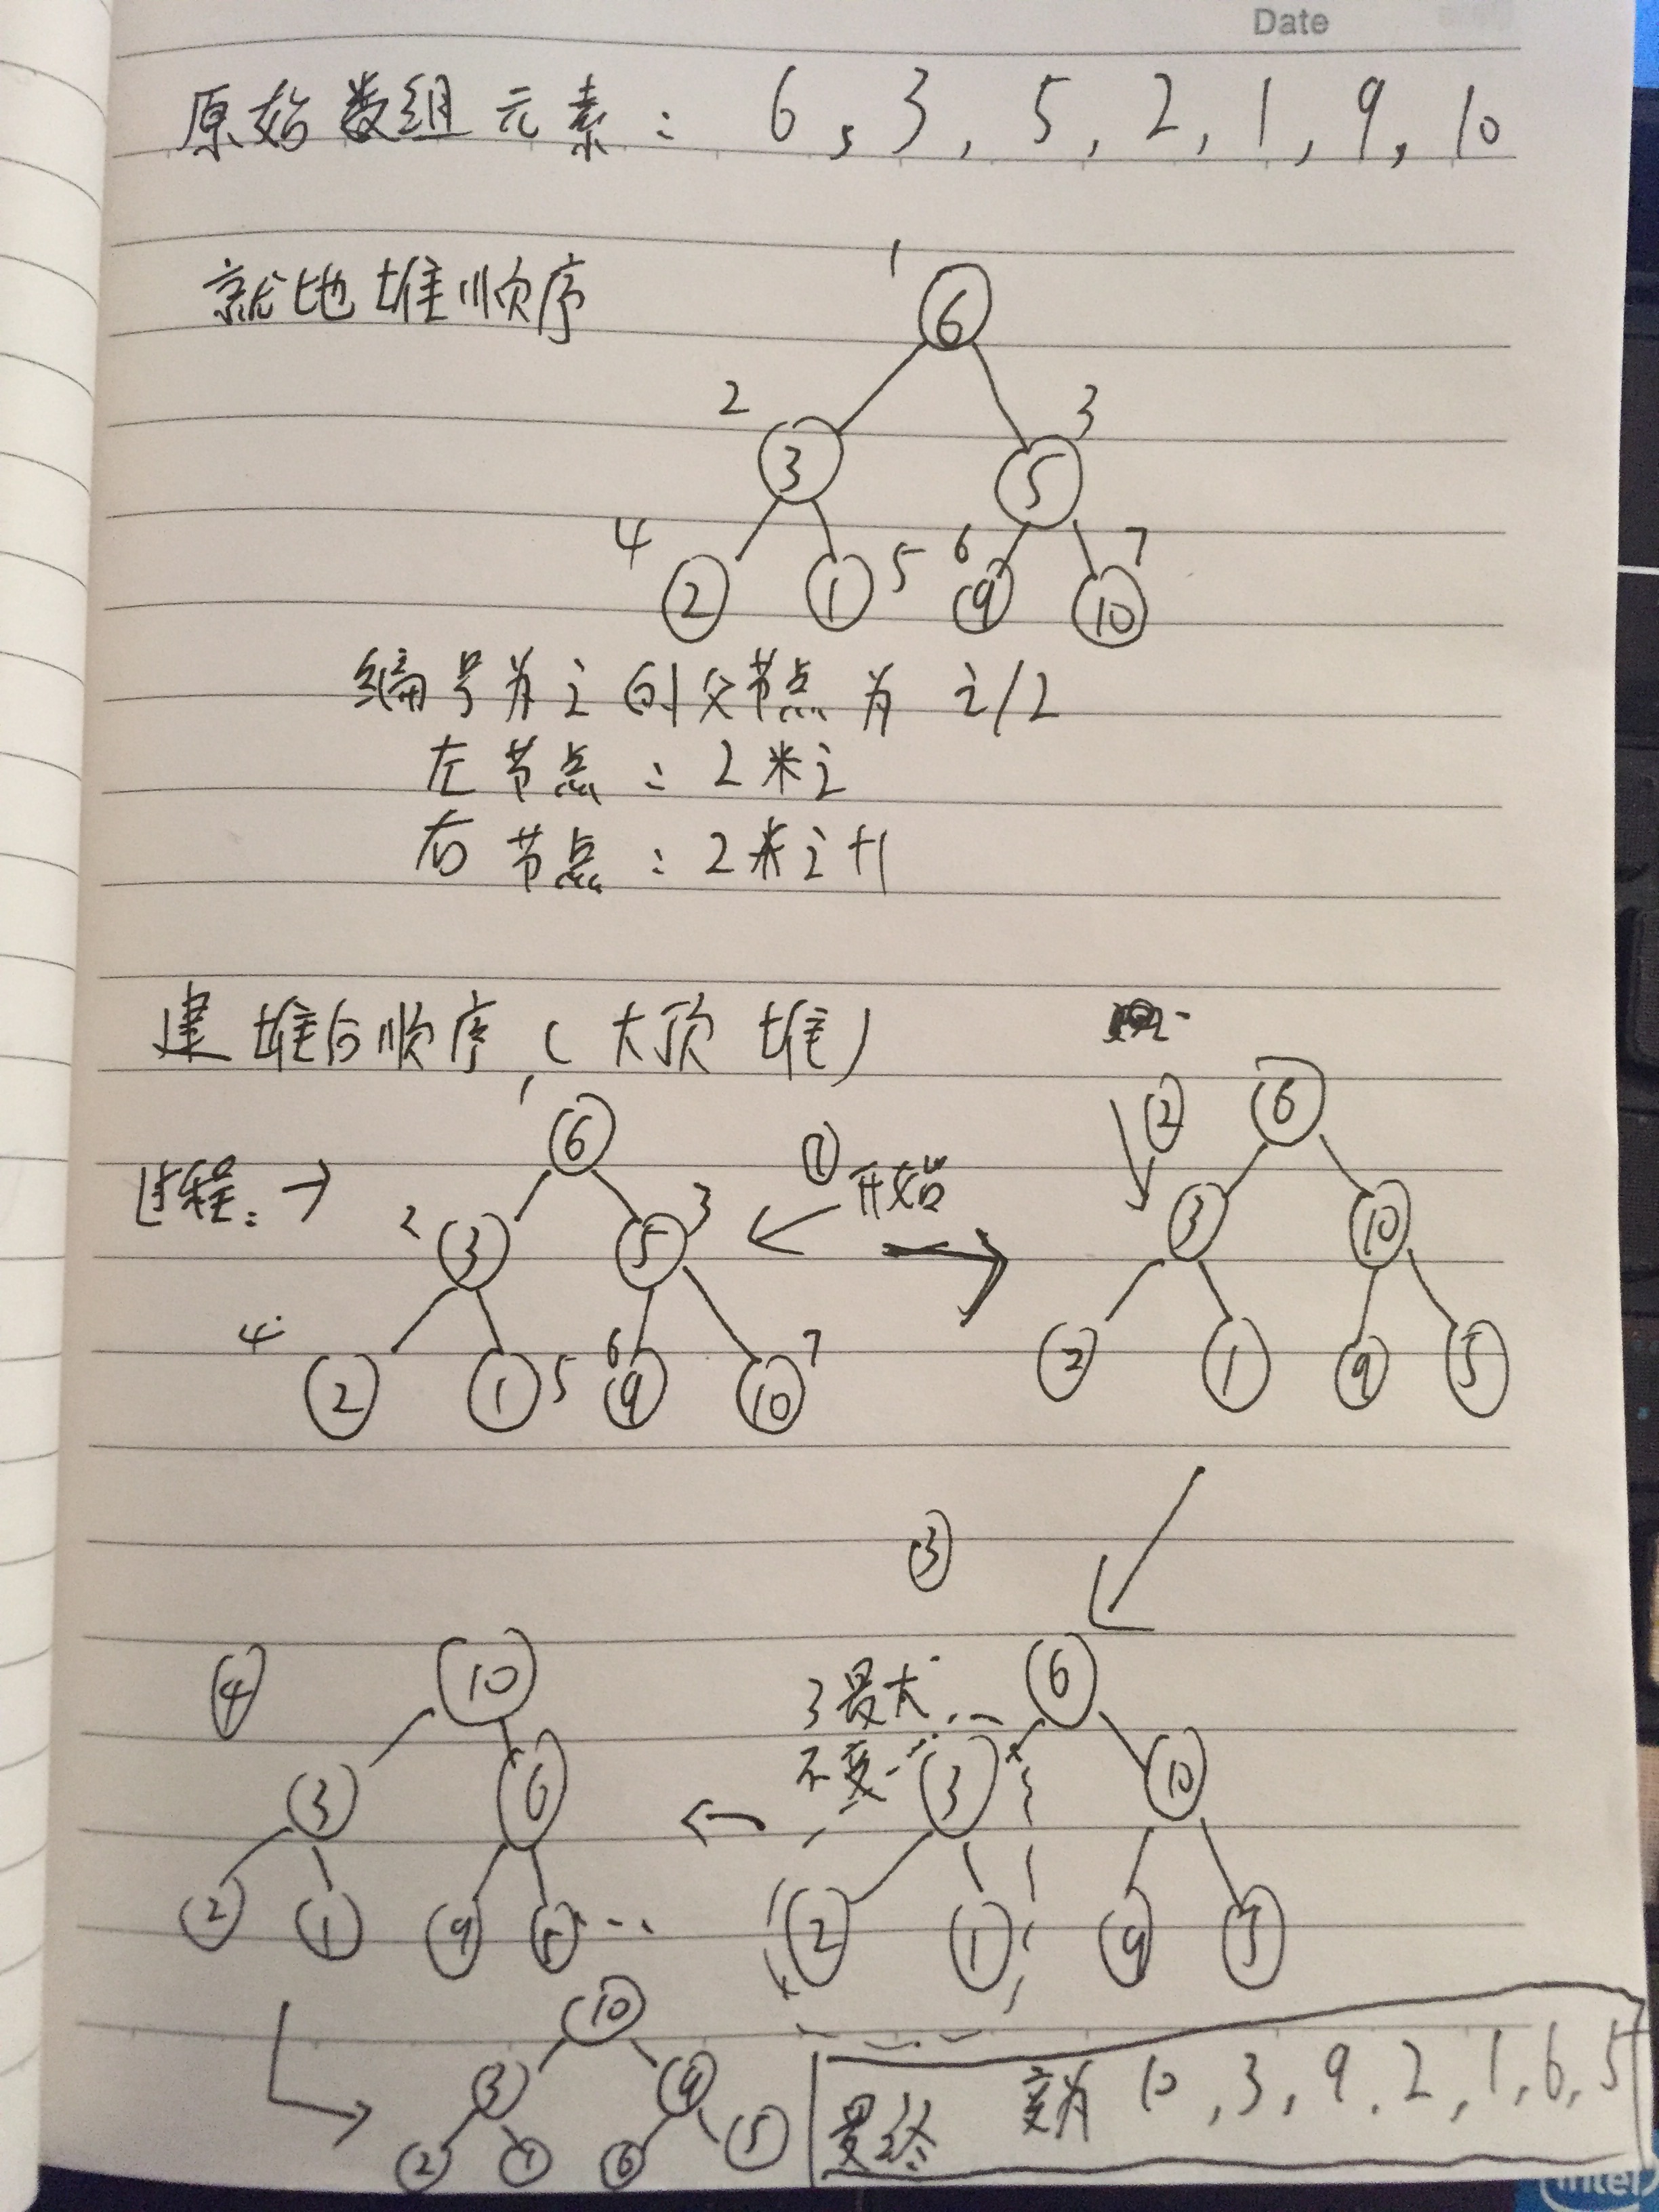 Date
原始数组元素: 6, 3, 5, 2, 1, 9, 10
就地堆顺序
1
6
2 3
3 5
4 5 6 7
2 1 9 10
编号为i的父节点为 i/2
左节点: 2*i
右节点: 2*i+1
建堆后顺序(大顶堆)
过程: →
1
6
2 3
3 5
4 5 6 7
2 1 9 10
① 开始
②
6
3 10
2 1 9 5
③
3最大
不变
6
3 10
2 1 9 5
④
10
3 6
2 1 9 5
10
3 9
2 1 6 5
最终 变为 10, 3, 9, 2, 1, 6, 5
intel